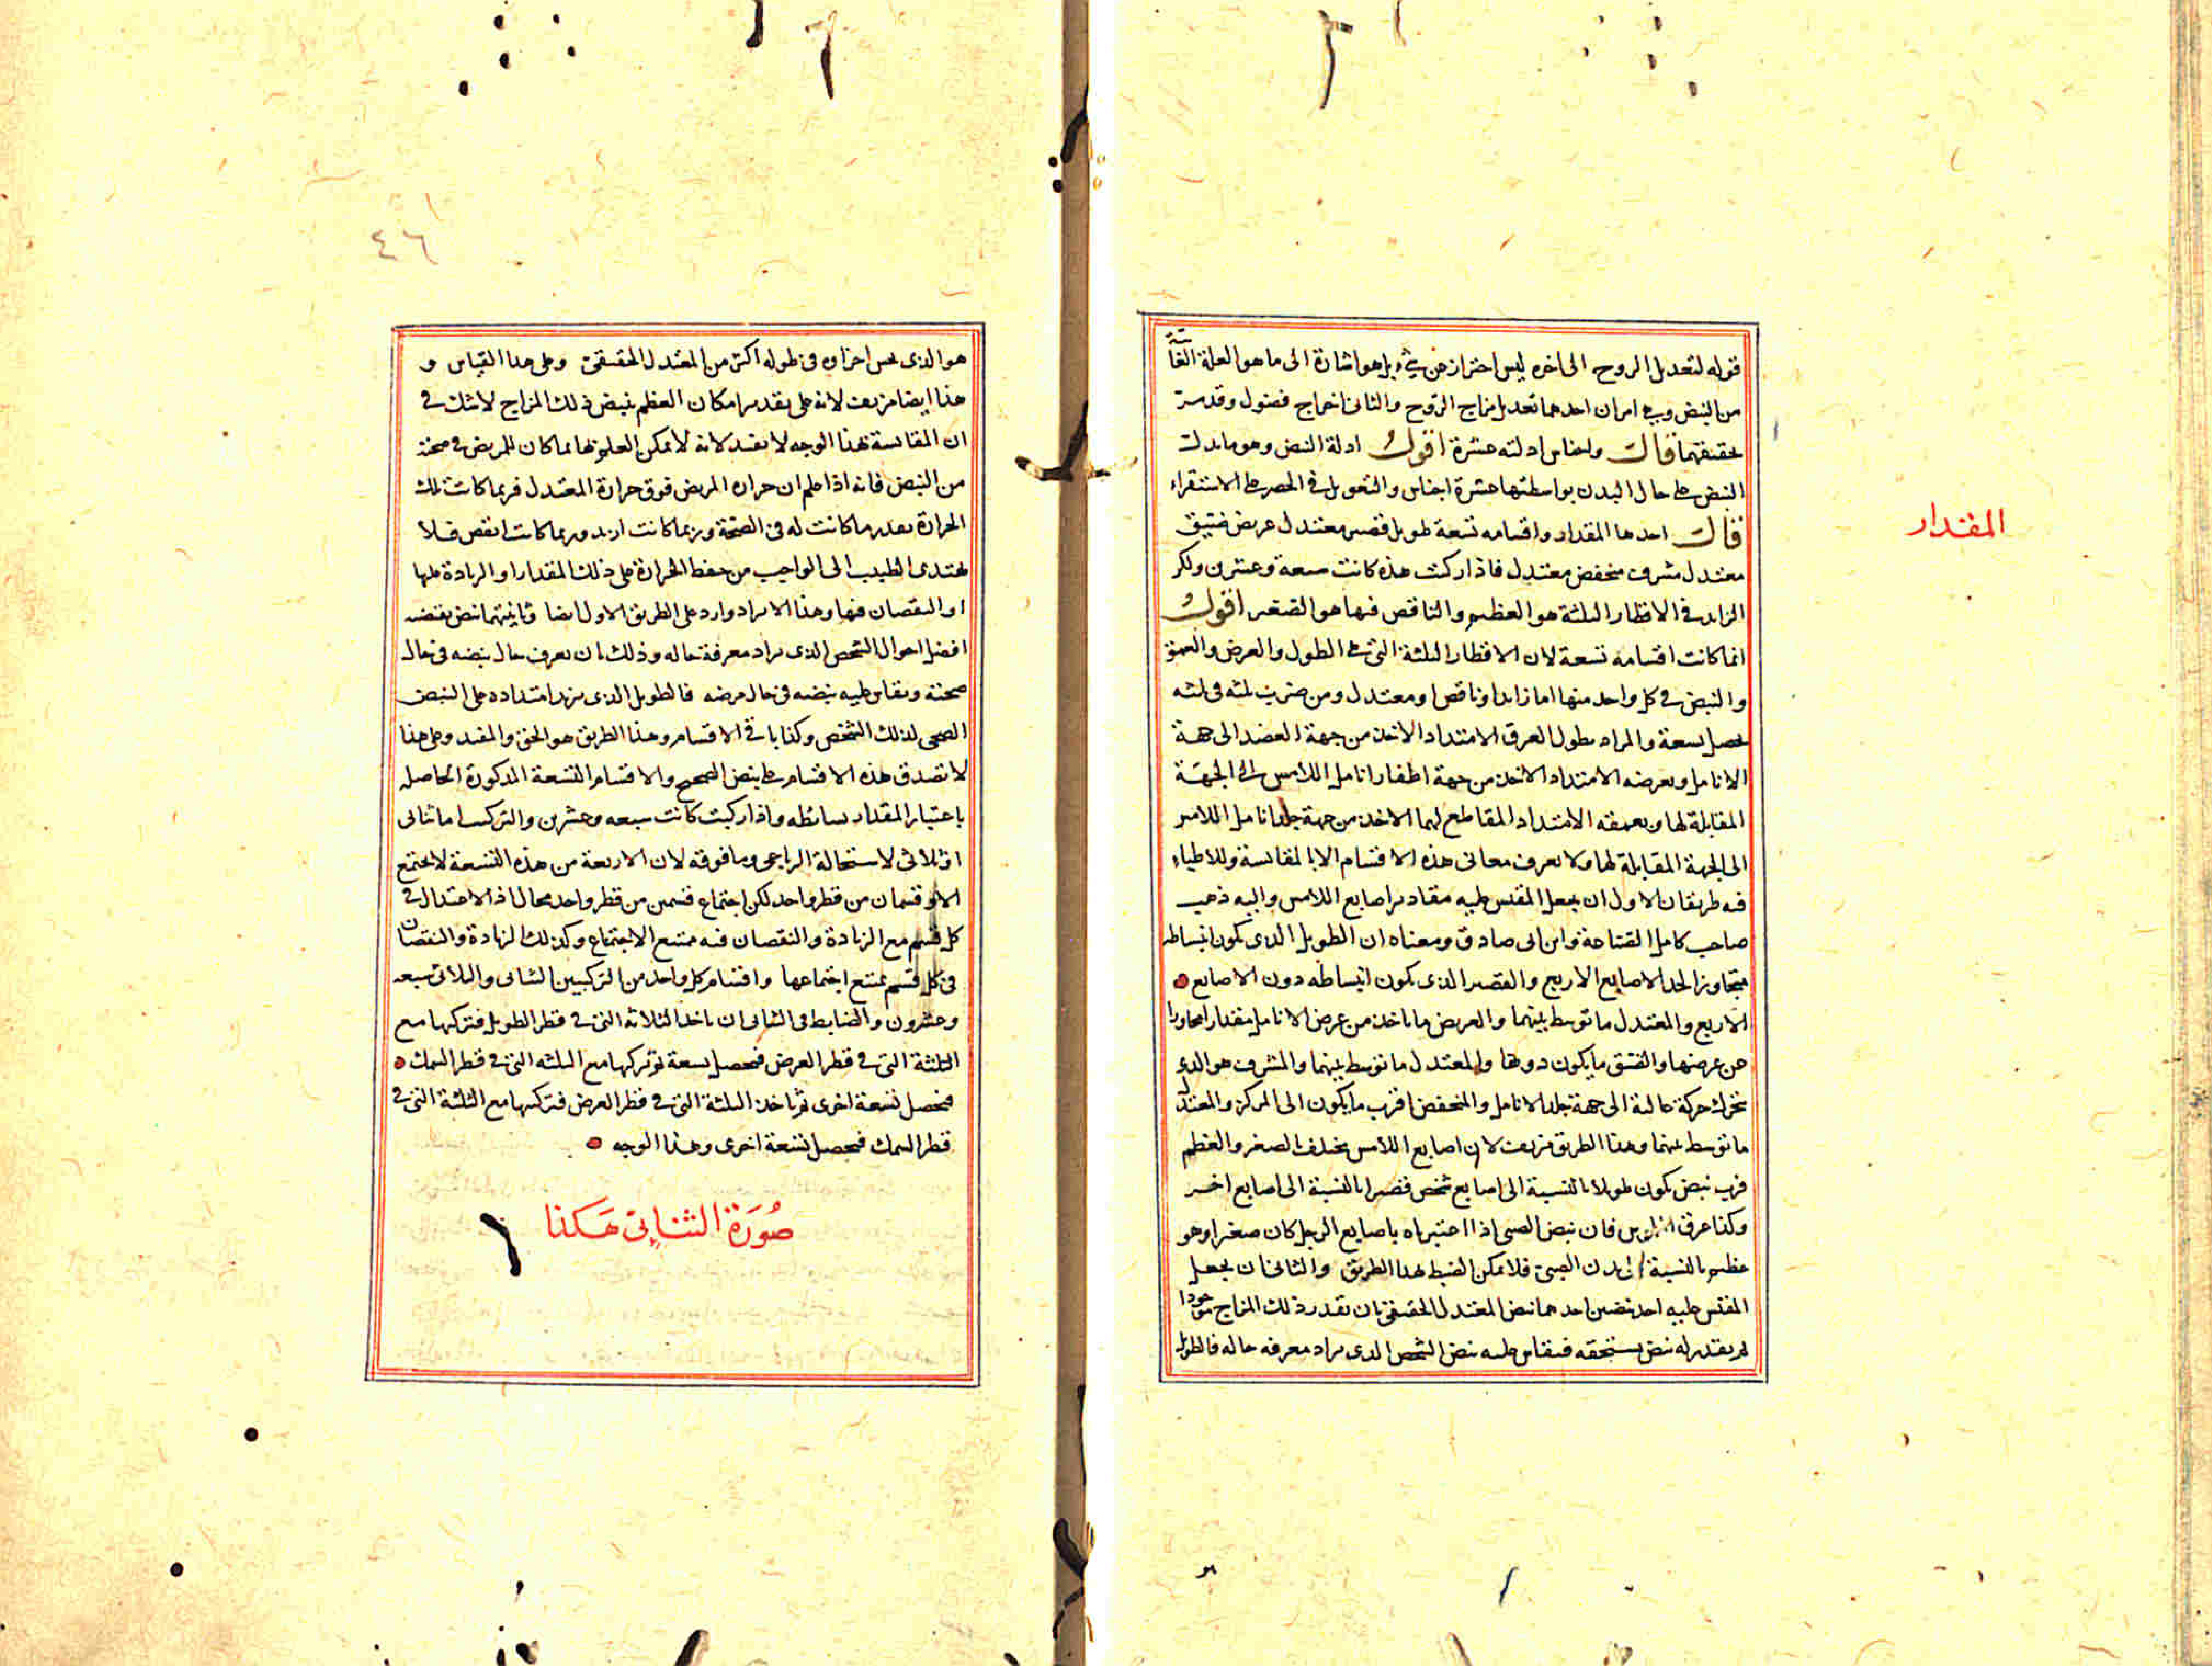 قوله لتعديل الروح الى اخره ليس احتراز عن شئ بل هو اشارة الى ما هو العلة الغائية
من النبض وهى امران احدهما تعديل مزاج الروح والثانى اخراج فضول وقد مر
تحقيقهما قال واجناس ادلته عشرة اقول ادلة النبض وهو ما يدل
النبض على حال البدن بواسطتها عشرة اجناس والتعويل فى الحصر على الاستقراء
قال احدها المقدار واقسامه تسعة طويل قصير معتدل عريض ضيق
معتدل مشرف منخفض معتدل فاذا ركبت هذه كانت سبعة وعشرين ولكن
الزايد فى الاقطار الثلثة هو العظيم والناقص فيها هو الصغير اقول
انما كانت اقسامه تسعة لان الاقطار الثلثة التى هى الطول والعرض والعمق
والنبض فى كل واحد منها اما زايد او ناقص او معتدل ومن ضرب ثلثه فى ثلثه
يحصل تسعة والمراد بطول العرق الامتداد الاخذ من جهة العضد الى جهة
الانامل وبعرضه الامتداد الاخذ من جهة اظفار انامل اللامس الى الجهة
المقابلة لها وبعمقه الامتداد المقاطع لهما الاخذ من جهة جلد انامل اللامس
الى الجهة المقابلة لها ولا يعرف معانى هذه الاقسام الا بالمقايسة وللاطباء
فيه طريقان الاول ان يجعل المقيس عليه مقادير اصابع اللامس واليه ذهب
صاحب كامل الصناعة وابن ابى صادق ومعناه ان الطويل الذى يكون انبساطه
متجاوزا لحد الاصابع الاربع والقصير الذى يكون انبساطه دون الاصابع
الاربع والمعتدل ما توسط بينهما والعريض ما ياخذ من عرض الانامل مقدارا مجاوزا
عن عرضها والضيق ما يكون دونها والمعتدل ما توسط بينهما والمشرف هو الذى
يتحرك حركة عالية الى جهة جلد الانامل والمنخفض اقرب ما يكون الى المركز والمعتدل
ما توسط بينهما وهذا الطريق مزيف لان اصابع اللامس يختلف بالصغر والعظم
فرب نبض يكون طويلا بالنسبة الى اصابع شخص قصيرا بالنسبة الى اصابع اخر
وكذا عرق فان نبض الصبى اذا اعتبرناه باصابع الرجل كان صغيرا وهو
عظيم بالنسبة الى بدن الصبى فلا يمكن الضبط بهذا الطريق والثانى ان يجعل
المقيس عليه احد نبضين احدهما نبض المعتدل الحقيقى بان نقدر ذلك المزاج موجودا
ثم يقدر له نبض يستحقه فيقاس عليه نبض الشخص الذى يراد معرفة حاله فالطويل
المقدار
٤٦
هو الذى يحس اجزاوه فى طوله اكثر من المعتدل الحقيقى وعلى هذا القياس و
هذا ايضا مزيف لانه على تقدير امكان العظم نبض ذلك المزاج لا شك فى
ان المقايسة بهذا الوجه لا يفيد لانه لا يمكن العلم بها بما كان للمريض فى صحته
من النبض فانه اذا علم ان حرارة المريض فوق حرارة المعتدل فربما كانت تلك
الحرارة بقدر ما كانت له فى الصحة وربما كانت ازيد وربما كانت انقص فلا
يهتدى الطبيب الى الواجب من حفظ الحرارة على ذلك المقدار او الزيادة عليها
او النقصان فيها وهذا الايراد وارد على الطريق الاول ايضا وثانيهما نبض يقتضيه
افضل احوال الشخص الذى يراد معرفة حاله وذلك بان يعرف حال نبضه فى حال
صحته ويقاس عليه نبضه فى حال مرضه فالطويل الذى يزيد امتداده على النبض
الصحى لذلك الشخص وكذا باقى الاقسام وهذا الطريق هو الحق والمفيد وعلى هذا
لا تصدق هذه الاقسام على نبض الصحيح والاقسام التسعة المذكورة الحاصله
باعتبار المقدار بسائطه واذا ركبت كانت سبعه وعشرين والتركيب اما ثنائى
او ثلاثى لاستحالة الرباعى وما فوقه لان الاربعة من هذه التسعة لا يجتمع
الا وقسمان من قطر واحد لكن اجتماع قسمين من قطر واحد محال اذ الاعتدال فى
كل قسم مع الزيادة والنقصان فيه ممتنع الاجتماع وكذلك الزيادة والنقصان
فى كل قسم يمتنع اجتماعها واقسام كل واحد من التركيبين الثنائى والثلاثى سبعه
وعشرون والضابط فى الثنائى ان ناخذ الثلاثة التى فى قطر الطويل فنركبها مع
الثلثة التى فى قطر العرض فيحصل تسعة ثم نركبها مع الثلثه التى فى قطر السمك
فيحصل تسعة اخرى ثم ناخذ الثلثة التى فى قطر العرض فنركبها مع الثلثة التى فى
قطر السمك فيحصل تسعة اخرى وهذا الوجه
صُورَة الثنائى هَكذا